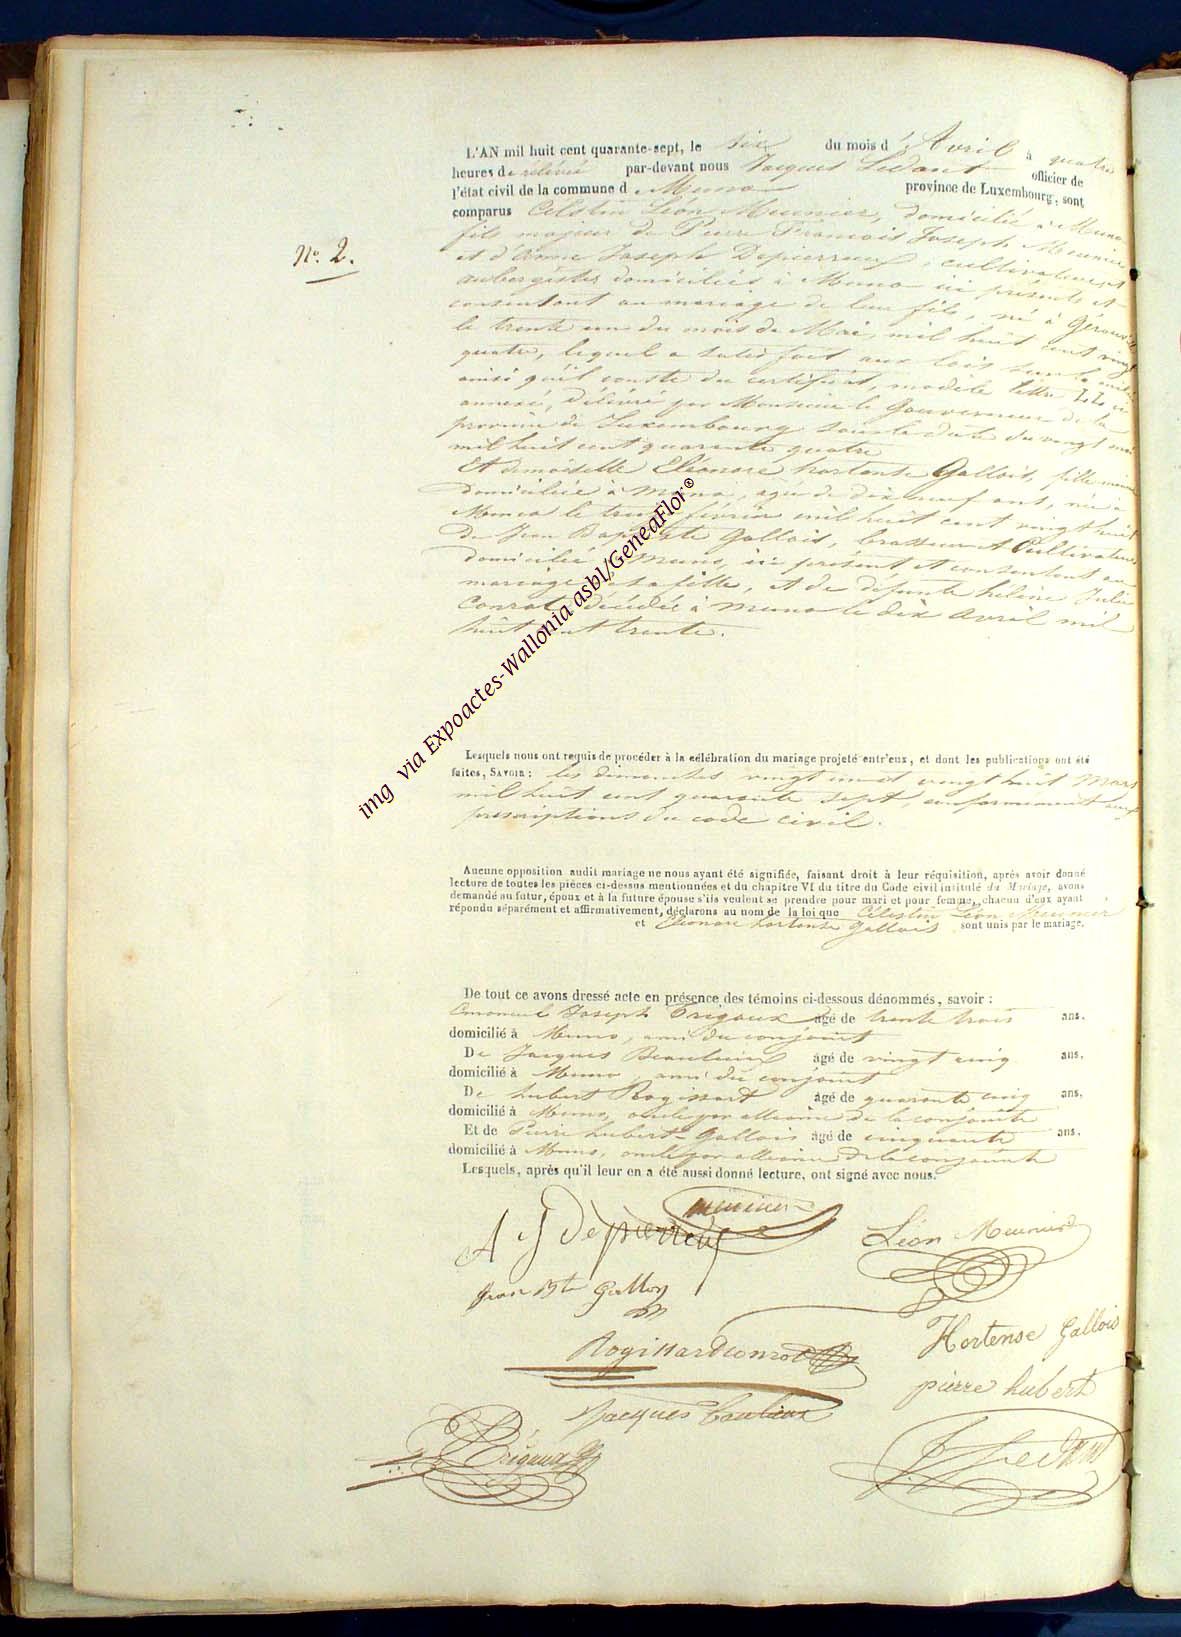 L'AN mil huit cent quarante-sept, le six du mois d'Avril à quatre
heures de relevée par-devant nous Jacques Ledant officier de
l'état civil de la commune d Muno province de Luxembourg, sont
comparus Célestin Léon Meunier, domicilié à Muno
fils majeur de Pierre François Joseph Meunier
et d'Anne Joseph Depierreux, cultivateurs et
aubergistes domiciliés à Muno ici présents et
consentant au mariage de leur fils, né à Gérouville
le trente un du mois de Mai, mil huit cent vingt
quatre, lequel a satisfait aux lois sur la milice
ainsi qu'il conste du certificat, modèle lettre LL ci
annexé, délivré par Monsieur le Gouverneur de la
province de Luxembourg sous la date du vingt mai
mil huit cent quarante quatre
Et demoiselle Eléonore hortense Gallois, fille mineure
domiciliée à Muno, agée de dix neuf ans, née à
Muno le trente février mil huit cent vingt huit
De Jean Baptiste Gallois, brasseur et Cultivateur
domicilié à Muno, ici présent et consentant au
mariage de sa fille, et de défunte helène Julie
Conrot décédée à Muno le dix avril mil
huit cent trente.
N° 2.
Lesquels nous ont requis de procéder à la célébration du mariage projeté entr'eux, et dont les publications ont été
faites, SAVOIR : les dimanches vingt un et vingt huit Mars
mil huit cent quarante sept, conformément aux
prescriptions du code civil.
Aucune opposition audit mariage ne nous ayant été signifiée, faisant droit à leur réquisition, après avoir donné
lecture de toutes les pièces ci-dessus mentionnées et du chapitre VI du titre du Code civil intitulé du Mariage, avons
demandé au futur, époux et à la future épouse s'ils veulent se prendre pour mari et pour femme, chacun d'eux ayant
répondu séparément et affirmativement, déclarons au nom de la loi que Célestin Léon Meunier
et Eléonore hortense Gallois sont unis par le mariage.
De tout ce avons dressé acte en présence des témoins ci-dessous dénommés, savoir :
Emanuel Joseph Trigaux âgé de trente trois ans.
domicilié à Muno, ami du conjoint
De Jacques Beaulieux âgé de vingt cinq ans.
domicilié à Muno, ami du conjoint
De hubert Rogissart âgé de quarante cinq ans,
domicilié à Muno, oncle par alliance de la conjointe
Et de Pierre hubert Gallois âgé de cinquante ans.
domicilié à Muno, oncle par alliance de la conjointe
Lesquels, après qu'il leur en a été aussi donné lecture, ont signé avec nous.
meunier
A J Depierreux Léon Meunier
Jean Bte Gallois
Hortense Gallois
Rogissart Conrot
pierre hubert
Jacques Baulieux
Trigaux
J Ledant
img via Expoactes-Wallonia asbl/GeneaFlor®